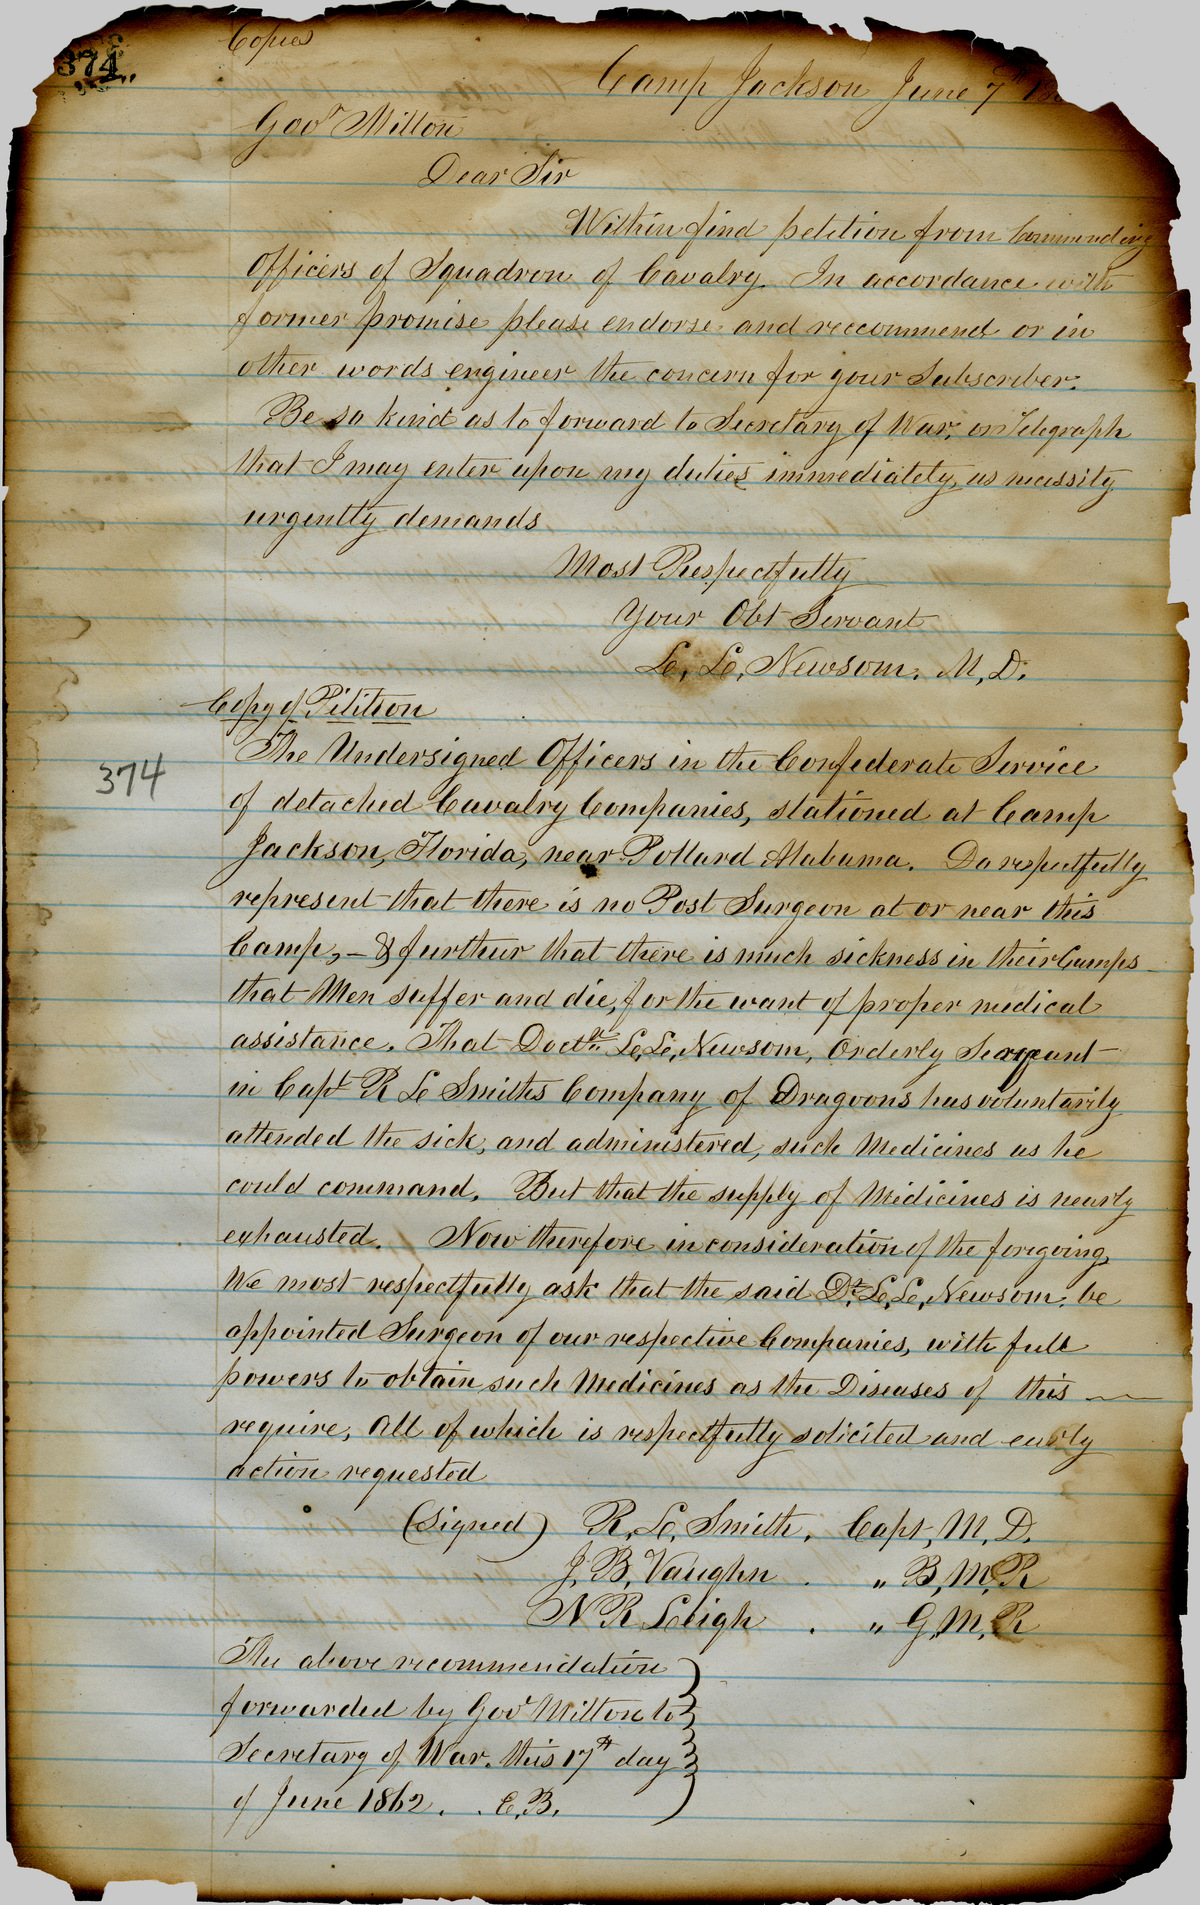 Copies
374
Camp Jackson June 7th 18
Gov' Milton
Dear Sir
Within find petition from Commending
Officers of Squadron of Cavalry. In accordance with
former promise please endorse and reccommend or in
other words engineer the concern for your Subscriber.
Be so kind as to forward to Secretary of War, or Telegraph
that I may enter upon my duties immediately, as necessity
urgently demands
Most Respectfully
Your Obt Servant
L, L, Newsom, M, D.
Copy of Petition
The Undersigned Officers in the Confederate Service
374
of detached Cavalry Companies, stationed at Camp
Jackson, Florida, near Pollard Alabama. Do respectfully
represent that there is no Post Surgeon at or near this
Camp, - & furthur that there is much sickness in their Camps
that Men suffer and die, for the want of proper medical
assistance. That Doctr L, L, Newsom, Orderly Sergeant
in Capt R L Smiths Company of Dragoons has voluntarily
attended the sick, and administered, such Medicines as he
could command. But that the supply of Medicines is nearly
exhausted. Now therefore in consideration of the foregoing,
We most respectfully ask that the said Dr L, L, Newsom, be
appointed Surgeon of our respective Companies, with full
powers to obtain such Medicines as the Diseases of this
require, All of which is respectfully solicited and early
action requested
(Signed) R, L, Smith, Capt, M, D.
J, B, Vaughn . " B, M, R
N R Leigh . " G, M, R
The above recommendation
forwarded by Gov' Milton to
Secretary of War. this 17th day
of June 1862. . C, B.